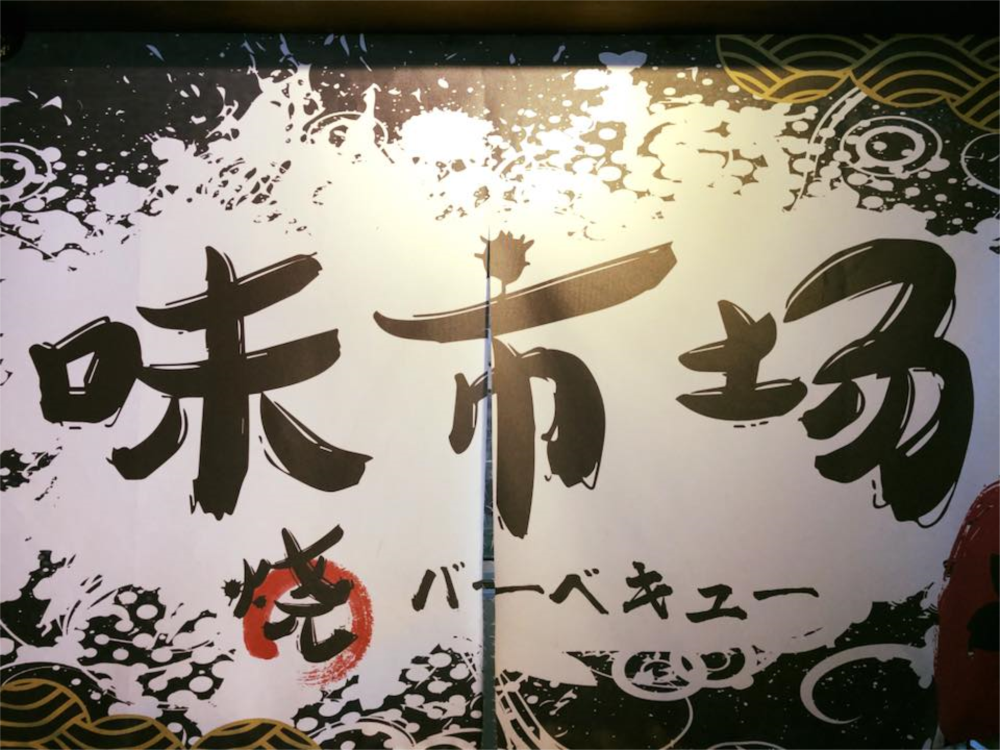 味市场
烧 バーベキュー